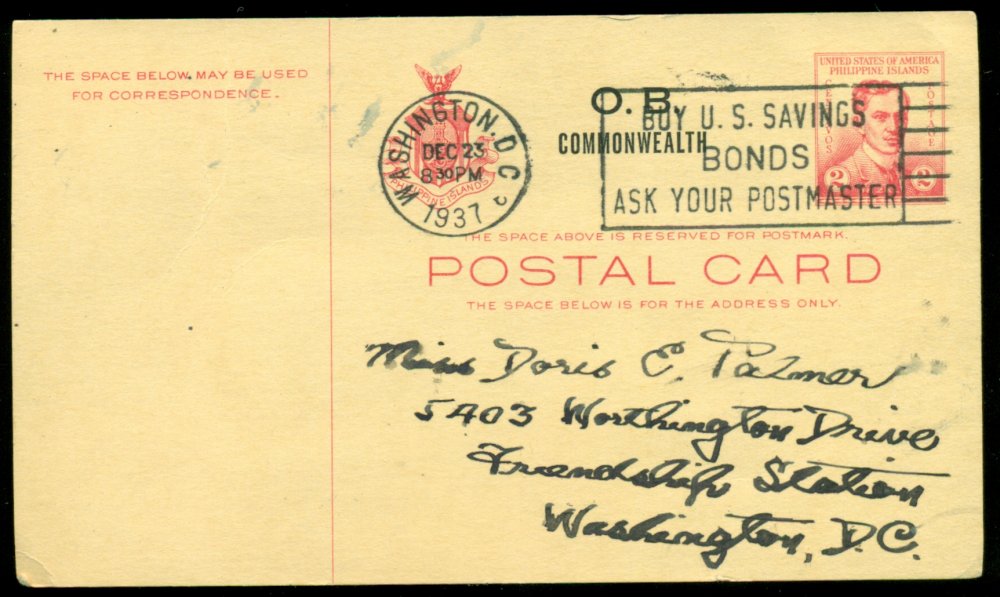 THE SPACE BELOW MAY BE USED
FOR CORRESPONDENCE.
UNITED STATES OF AMERICA
PHILIPPINE ISLANDS
CENTAVOS
POSTAGE
2 2
O. B.
COMMONWEALTH
WASHINGTON, D.C.
DEC 23
8 30 PM
1937
PHILIPPINE ISLANDS
BUY U. S. SAVINGS
BONDS
ASK YOUR POSTMASTER
THE SPACE ABOVE IS RESERVED FOR POSTMARK.
POSTAL CARD
THE SPACE BELOW IS FOR THE ADDRESS ONLY.
Miss Doris E. Palmer
5403 Worthington Drive
Friendship Station
Washington, D.C.